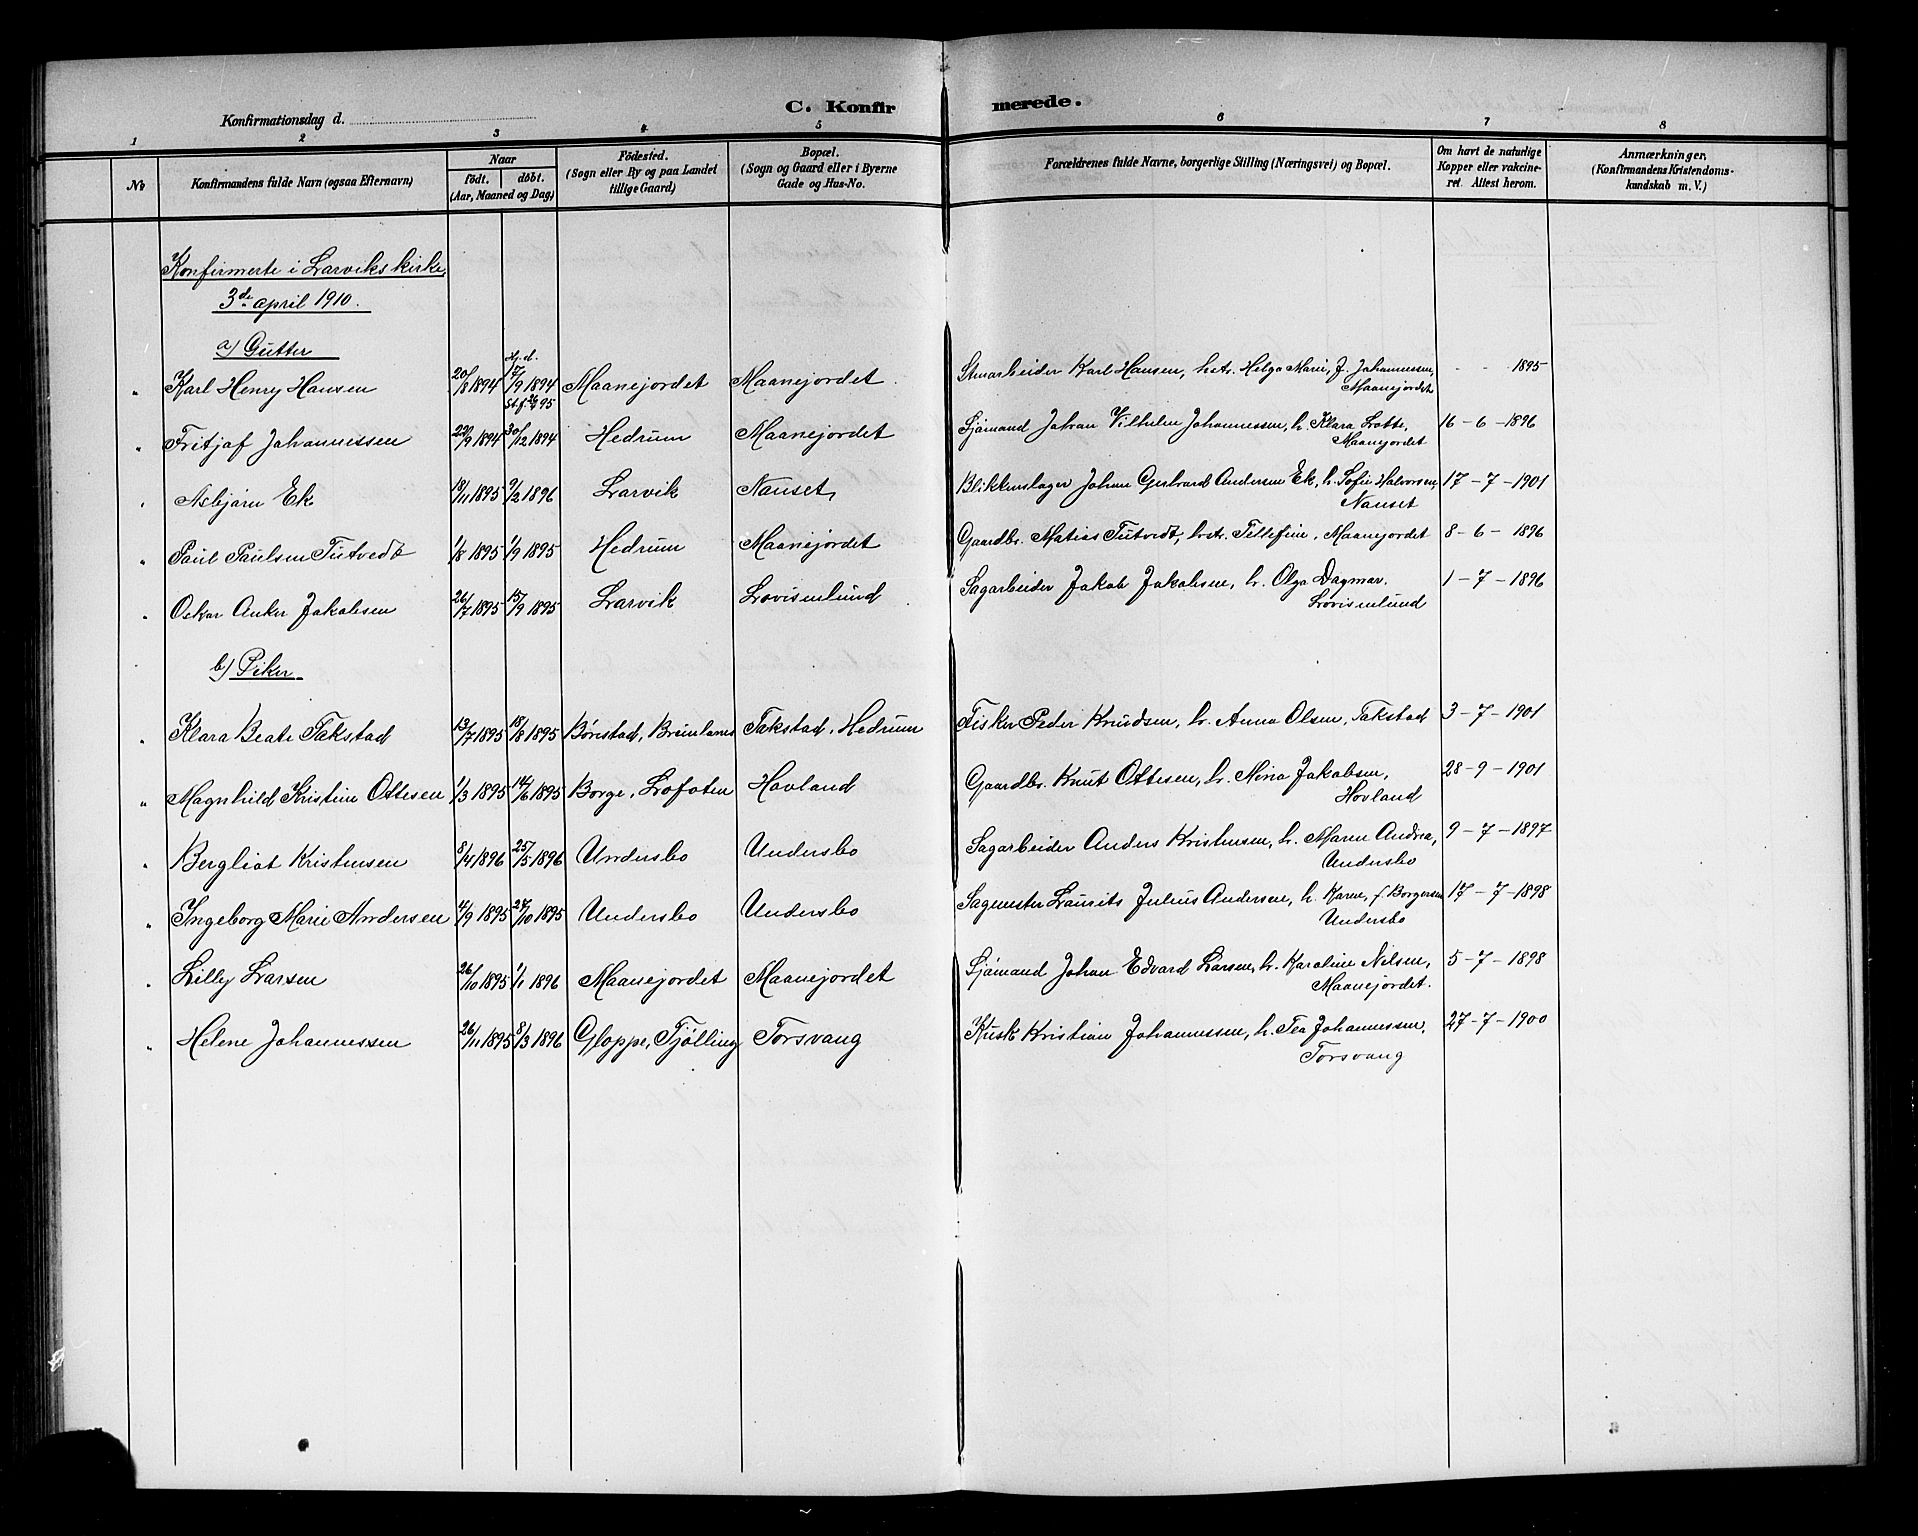 C. Konfirmerede.
Konfirmationsdag d.
1 2 3 4 5 6 7 8
No
Konfirmandens fulde Navn (ogsaa Efternavn)
Naar
födt. döbt.
(Aar, Maaned og Dag)
Födested.
(Sogn eller By og paa Landet
tillige Gaard)
Bopæl.
(Sogn og Gaard eller i Byerne
Gade og Hus-No.
Forældrenes fulde Navne, borgerlige Stilling (Næringsvei) og Bopæl.
Om havt de naturlige
Kopper eller vakcine-
ret. Attest herom.
Anmærkninger,
(Konfirmandens Kristendoms-
kundskab m. V.)
Konfirmerte i Larviks kirke
3de april 1910.
a) Gutter
Hj. d.
" Karl Henry Hansen 20/8 1894 17/9 1894 Maanejordet Maanejordet. Stenarbeider Karl Hansen, hstr. Helga Marie, f. Johannessen, - - 1895
Maanejordet
" Fritjof Johannessen 22/9 1894 30/12 1894 Hedrum Maanejordet Sjömand Johan Vilhelm Johannessen, h. Klara Lotte, 16-6-1896
Maanejordet
" Asbjørn Ek 18/11 1895 9/2 1896 Larvik Nanset, Blikkenslager Johan Gerhard Andersen Ek, h. Sofie Halvorsen, 17-7-1901
Nanset
" Paul Paulsen Tutvedt 1/8 1895 1/9 1895 Hedrum Maanejordet Gaardbr. Matias Tutvedt, hstr. Tellefine, Maanejordet 8-6-1896
" Oskar Anker Jakobsen 26/7 1895 15/9 1895 Larvik Lovisenlund Sagarbeider Jakob Jakobsen, h. Olga Dagmar. 1-7-1896
Lovisenlund
b) Piker
" Klara Beate Takstad 13/7 1895 18/8 1895 Børestad, Brunlanes Takstad, Hedrum Fisker Peder Knudsen, h. Anna Olsen, Takstad 3-7-1901
" Magnhild Kristine Ottesen 1/3 1895 14/6 1895 Borge, Lofoten Hovland Gaardbr. Knut Ottesen, h. Mina Jakobsen, 28-9-1901
Hovland
" Bergliot Kristensen 8/4 1896 25/5 1896 Undersbo Undersbo Sagarbeider Anders Kristensen, h. Maren Andrea, 9-7-1897
Undersbo
" Ingeborg Marie Andersen 4/9 1895 27/10 1895 Undersbo Undersbo Sagmester Laurits Julius Andersen, h. Karen, f. Borgersen 17-7-1898
Undersbo
" Lilly Larsen 26/10 1895 1/1 1896 Maanejordet Maanejordet Sjömand Johan Edvard Larsen, h. Karoline Nilsen, 5-7-1898
Maanejordet.
" Helene Johannessen 26/11 1895 8/3 1896 Gloppe, Tjølling Torsvang Kusk Kristian Johannessen, h. Tea Johannessen, 27-7-1900
Torsvang